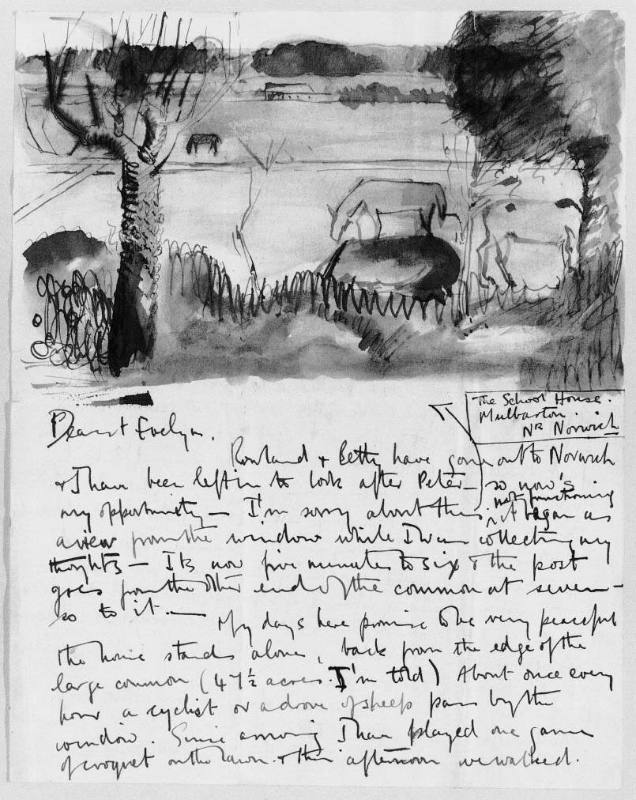 The School House.
Mulbarton.
Nr Norwich
Dearest Evelyn.
Rowland & Betty have gone out to Norwich
& I have been left in to look after Peter — so now's
my opportunity — I'm sorry about this, it began as
not functioning
a view from the window while I was collecting my
thoughts — Its now five minutes to six & the post
goes from the other end of the common at seven —
so to it. —
My days here promise to be very peaceful
the house stands alone, back from the edge of the
large common (47½ acres. I'm told) About once every
hour a cyclist or a drove of sheep pass by the
window. Since arriving I have played one game
of croquet on the lawn. & this afternoon we walked.